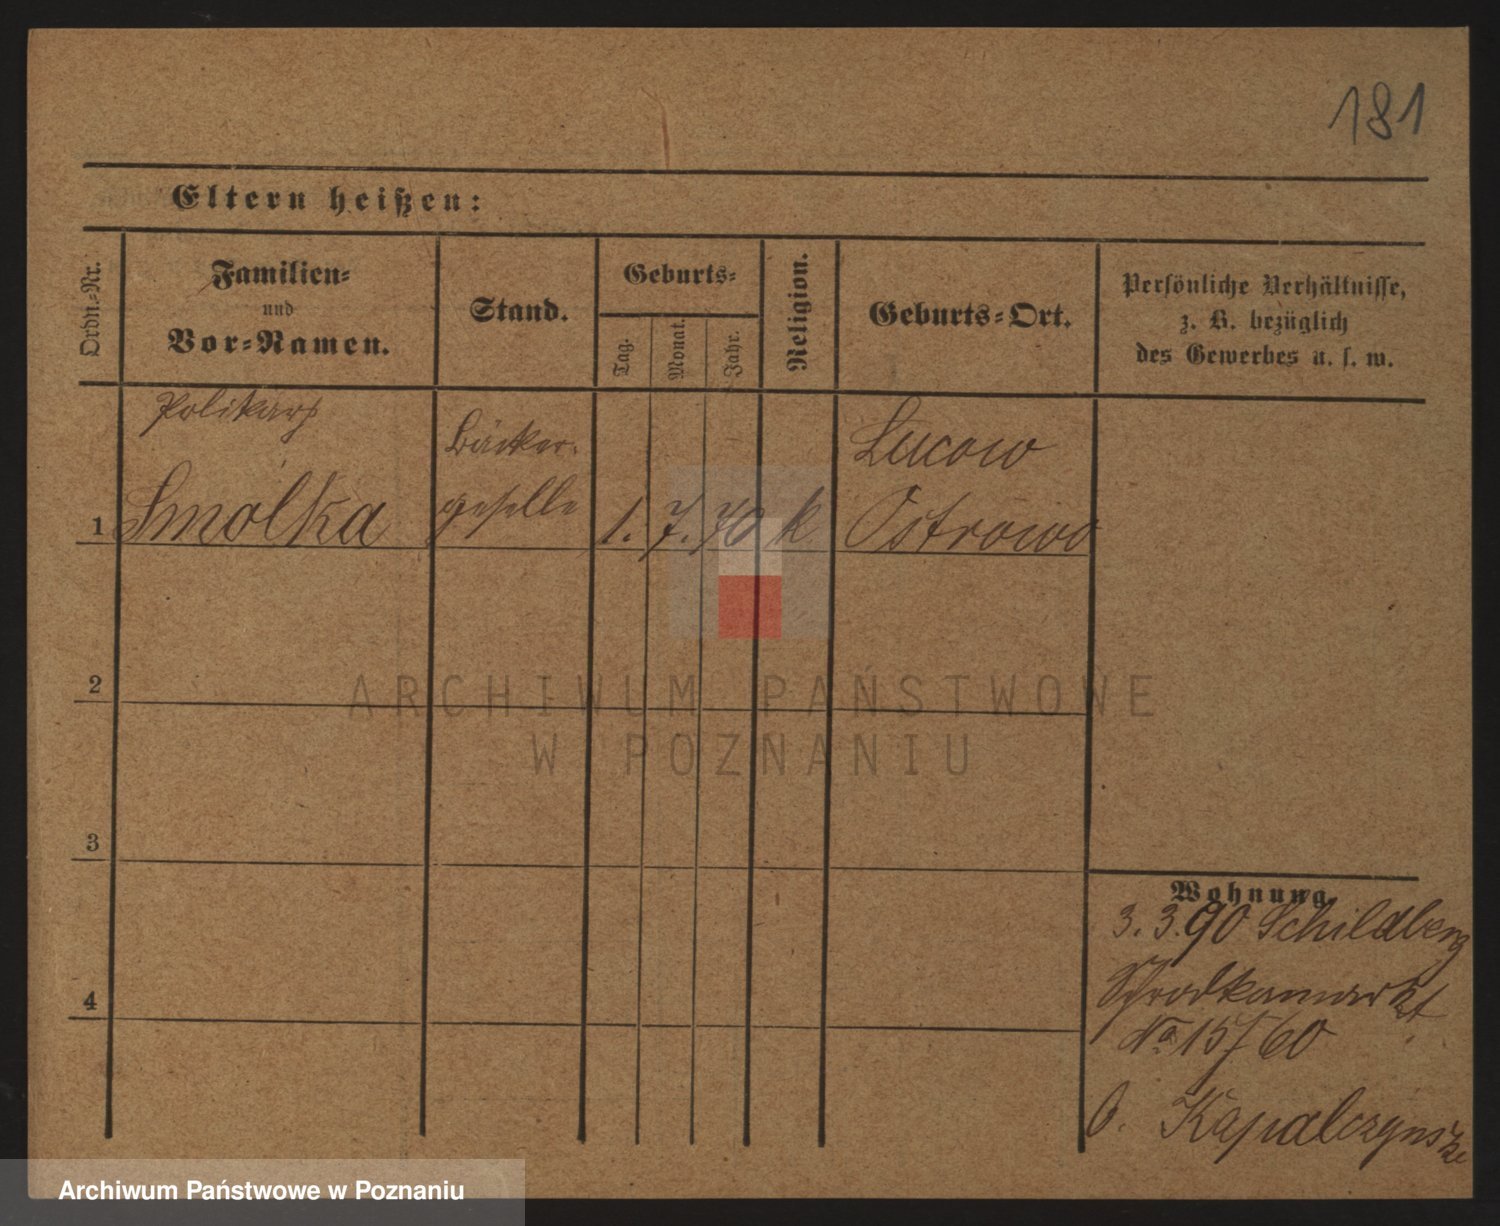 181
Eltern heißen:
Ordn.-Nr.
Familien-
und
Vor-Namen.
Stand.
Geburts-
Tag.
Monat.
Jahr.
Religion.
Geburts-Ort.
Persönliche Verhältnisse,
z. B. bezüglich
des Gewerbes u. s. w.
Polikarp
Bäcker-
Lucow
1 Smolka geselle 1. 7. 70 k Ostrowo
2
ARCHIWUM PAŃSTWOWE
W POZNANIU
3
Wohnung.
3. 3. 90 Schildberg
4
No 15/60
b. Kapalczynski
Archiwum Państwowe w Poznaniu